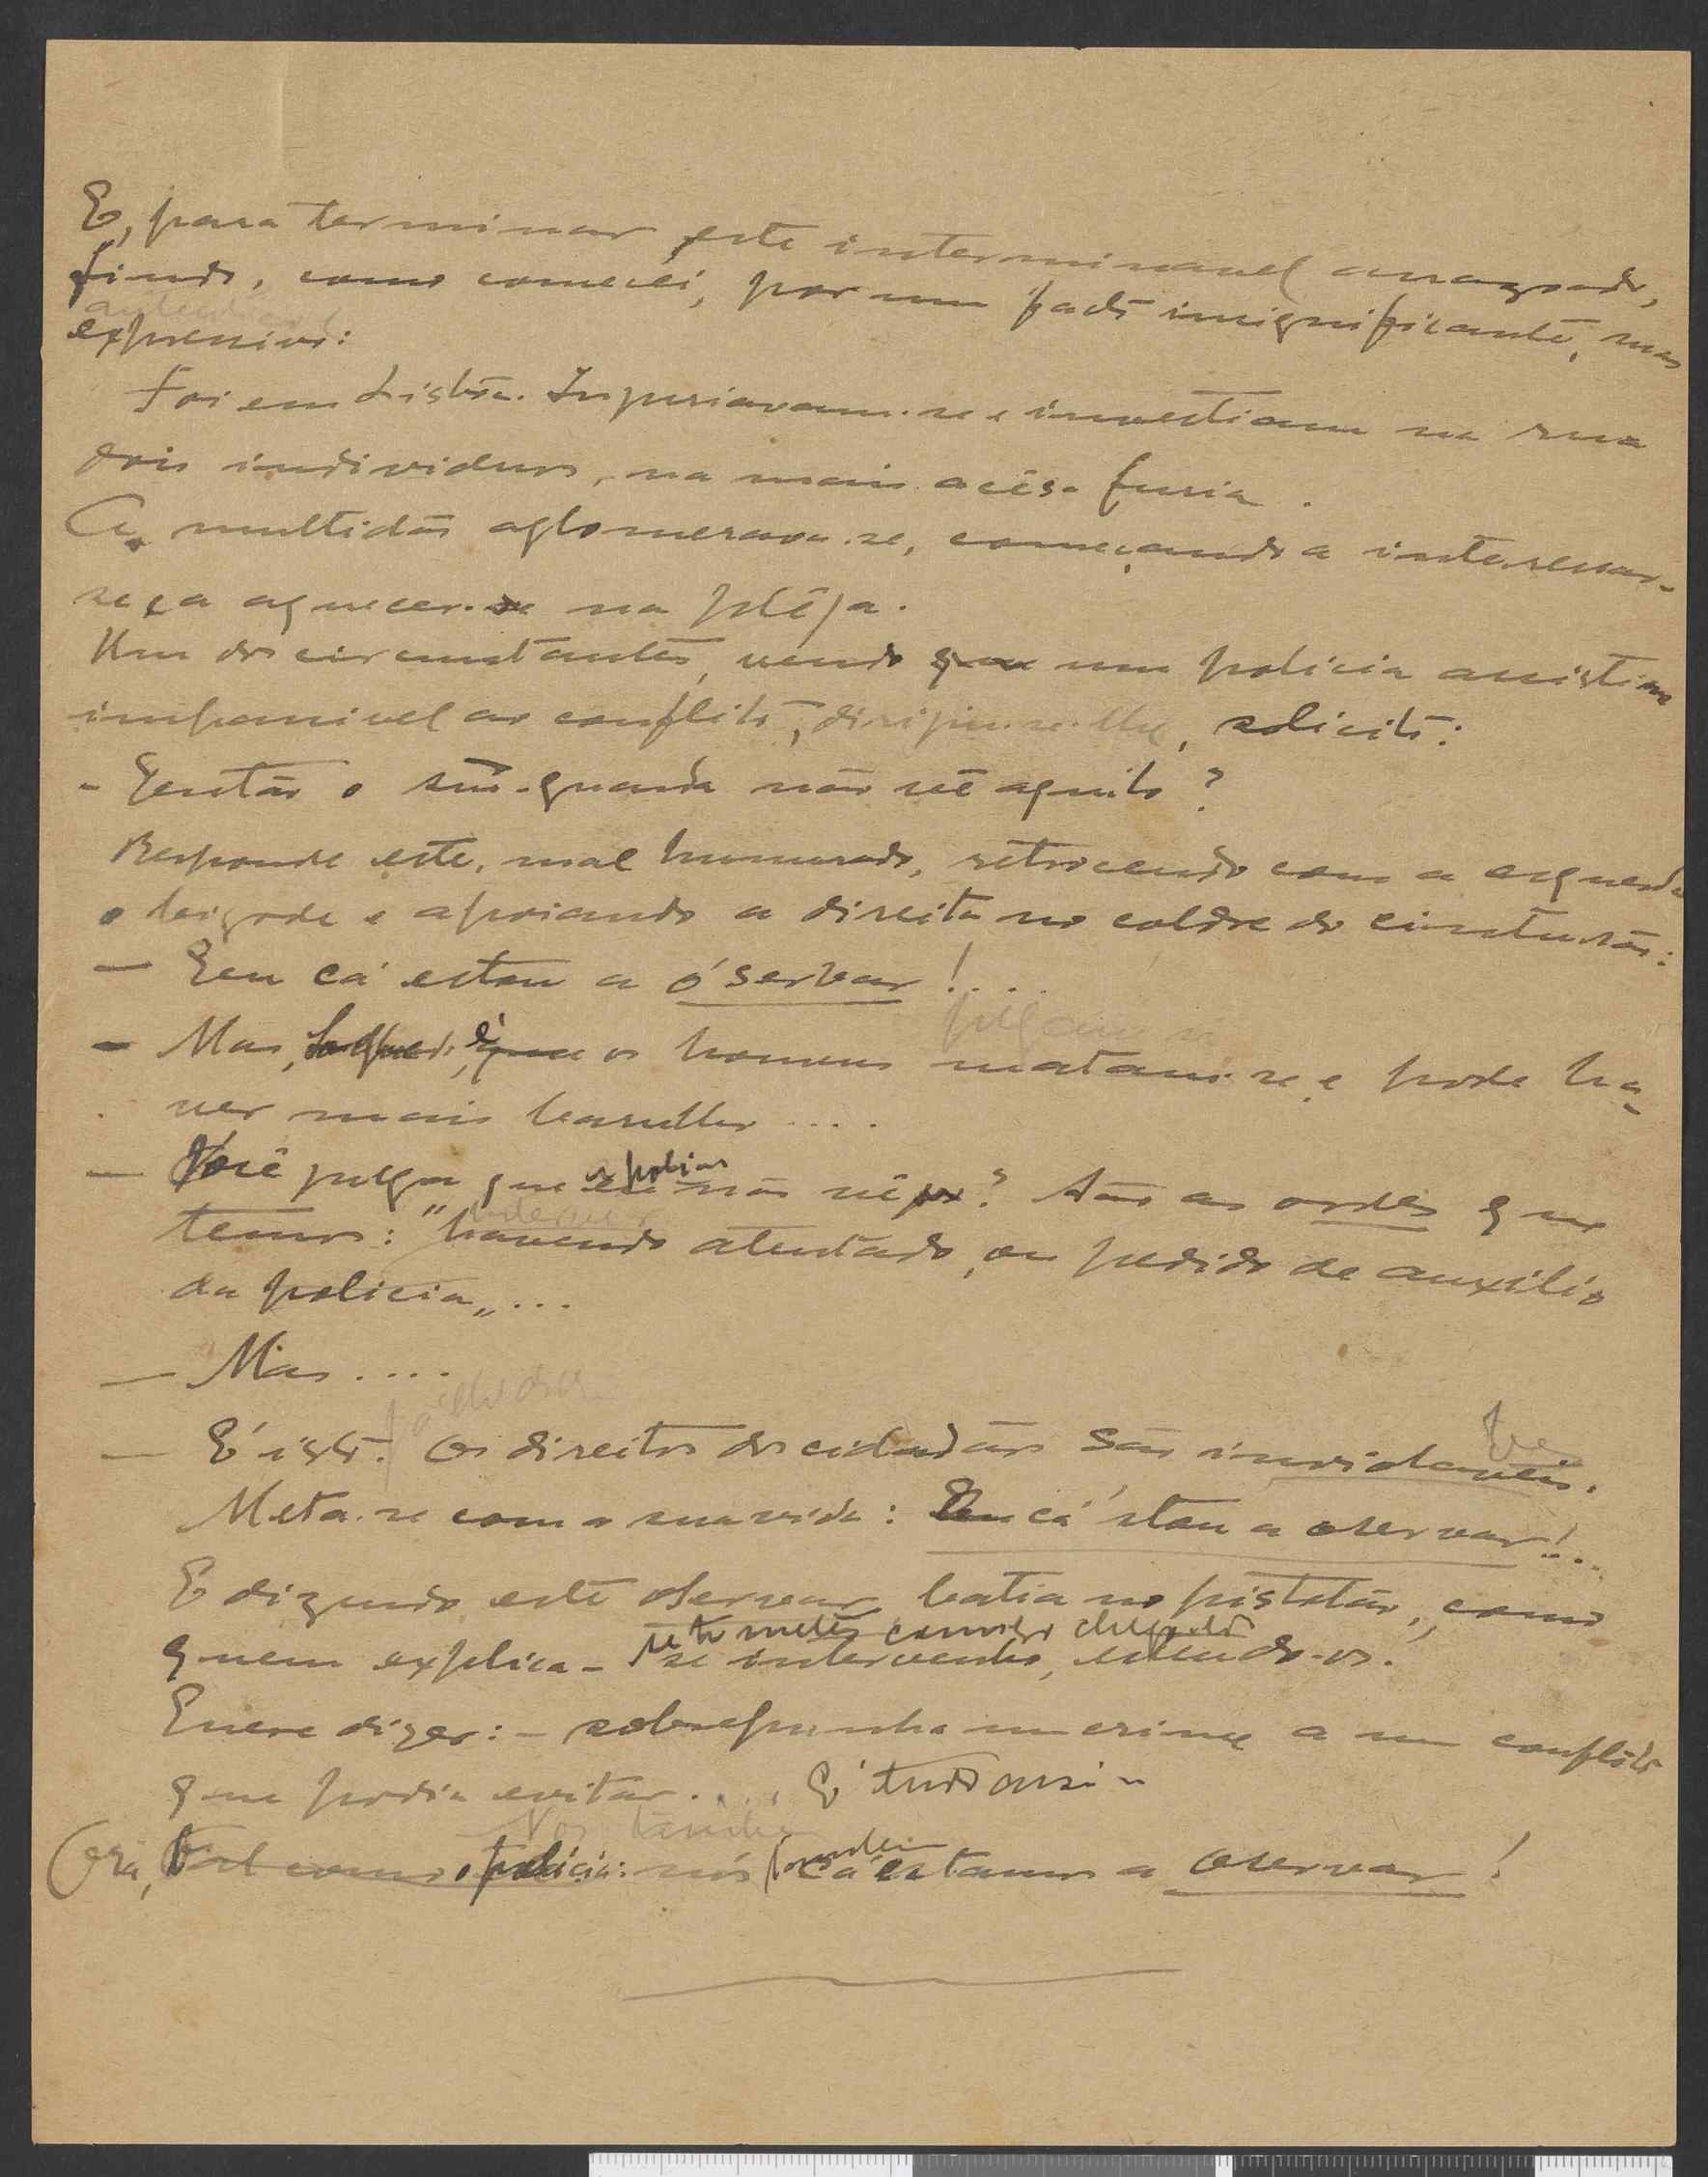 E, para terminar este interminavel arrazoado,
findo, como comecei, por um facto insignificante, mas
expressivo:
Foi em Lisbôa. Injuriavam-se e investiam na rua
dois individuos, na mais acêsa furia.
A multidão aglomerava-se, começando a interessar-
se e a aquecer-se na peleja.
Um dos circunstantes, vendo que um policia assistia
impassivel ao conflito, dirigiu-se-lhe, solicito:
- Então o snr. guarda não vê aquilo?
Responde este, mal humorado, retrocendo com a esquerda
o bigode e apoiando a direita no coldre do cinturão:
— Eu cá estou a ó'servar!....
julgam
— Mas, é que os homens matam-se e pode ha-
ver mais barulho ....
— Você julga que os policias não vê? São as ordes que
temos: "havendo atentado, ou pedido de auxilio
da policia„...
— Mas....
— E' isto. Os direitos dos cidadãos são inviolaveis.
Meta-se com a sua vida: Eu cá 'stou a oservar!...
E dizendo este oservar, batia no pistolão, como
se te metes comigo
quem explica - se intervenho,
Quere dizer: - sobrepunha um crime a um conflito
que podia evitar.... E' tudo assim
Nos tambem
Ora, tal como o policia: nós tambem cá estamos a oservar!